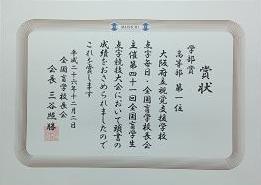 賞状
学部賞
高等部 第一位
大阪府立視覚支援学校
点字毎日・全国盲学校長会
主催第四十一回全国盲学生
点字競技大会において頭書の
成績をおさめられましたので
これを賞します
平成二十六年十二月二日
全国盲学校長会
会長 三谷照勝